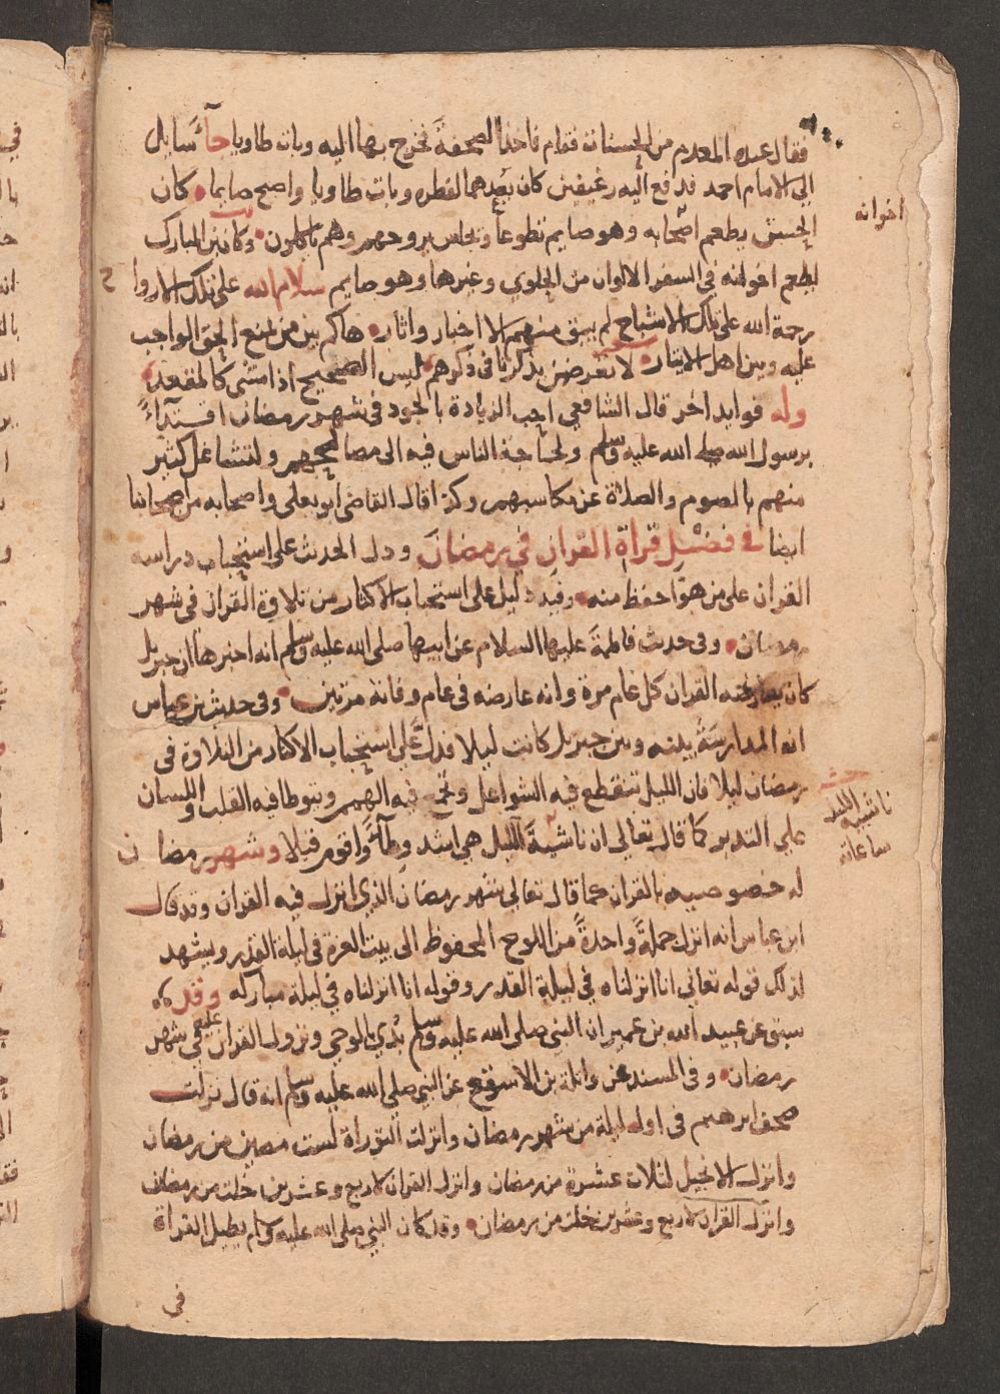 فقال عبده المعدم من الحسنات فقام فاخذ الصحفة فخرج بها اليه وبات طاويا جآء سايل
الى الامام احمد فدفع اليه رغيفين كان يُعِدهما لفطره وبات طاويا واصبح صايما كان
الحسن يطعم اصحابه وهو صايم تطوعا ويجلس يروحهم وهم ياكلون وكان بن المبارك
يطعم اخوانه في السفر الالوان من الحلوى وغيرها وهو صايم سلام الله على تلك الاروا ح
رحمة الله على تلك الاشباح لم يبق منهم الا اخبار واثار هاكم بين من يمنع الحق الواجب
عليه وبين اهل الايثار لا تعرضن بذكرنا في ذكرهم ليس الصحيح اذا مشى كالمقعد
وله فوايد اخر قال الشافعي احب الزيادة بالجود في شهر رمضان اقتدآءً
برسول الله صلى الله عليه وسلم ولحاجة الناس فيه الى مصالحهم ولتشاغل كثير
منهم بالصوم والصلاة عن مكاسبهم وكذا قال القاضى ابو يعلى واصحابه من اصحابنا
ايضا في فضل قراة القران في رمضان ودل الحديث على استحباب دراسة
القران على من هو احفظ منه وفيه دليل على استحباب الاكثار من تلاوة القران في شهر
رمضان وفي حديث فاطمة عليها السلام عن ابيها صلى الله عليه وسلم انه اخبرها ان جبريل
كان يعارضه القران كل عام مرة وانه عارضه في عام وفاته مرتين وفي حديث بن عباس
انه المدارسة بينه وبين جبريل كانت ليلا فدل على استحباب الاكثار من التلاوة في
رمضان ليلا فان الليل تنقطع فيه الشواغل وتجمع فيه الهمم ويتوطا فيه القلب واللسان
على التدبر كما قال تعالى ان ناشية الليل هي اشد وطآءً واقوم قيلا وشهر رمضان
له خصوصيه بالقران كما قال تعالى شهر رمضان الذي انزل فيه القران وقد قال
ابن عباس انه انزل جملةً واحدةً من اللوح المحفوظ الى بيت العزة في ليلة القدر ويشهد
لذلك قوله تعالى انا انزلناه في ليلة القدر وقوله انا انزلناه في ليلة مباركه وقد
سبق عن عبيد الله بن عمير ان النبي صلى الله عليه وسلم بُدي بالوحي ونزول القران عليه في شهر
رمضان وفي المسند عن واثلة بن الاسقع عن النبي صلى الله عليه وسلم انه قال نزلت
صحف ابرهيم في اول ليلة من شهر رمضان وانزلت التوراة لست مضين من رمضان
وانزل الانجيل لثلاث عشرة من رمضان وانزل القران لاربع وعشرين خلت من رمضان
وانزل القران لاربع وعشرين خلت من رمضان وقد كان النبي صلى الله عليه وسلم يطيل القراة
في
اخوانه
ناشية الليل
ساعاته